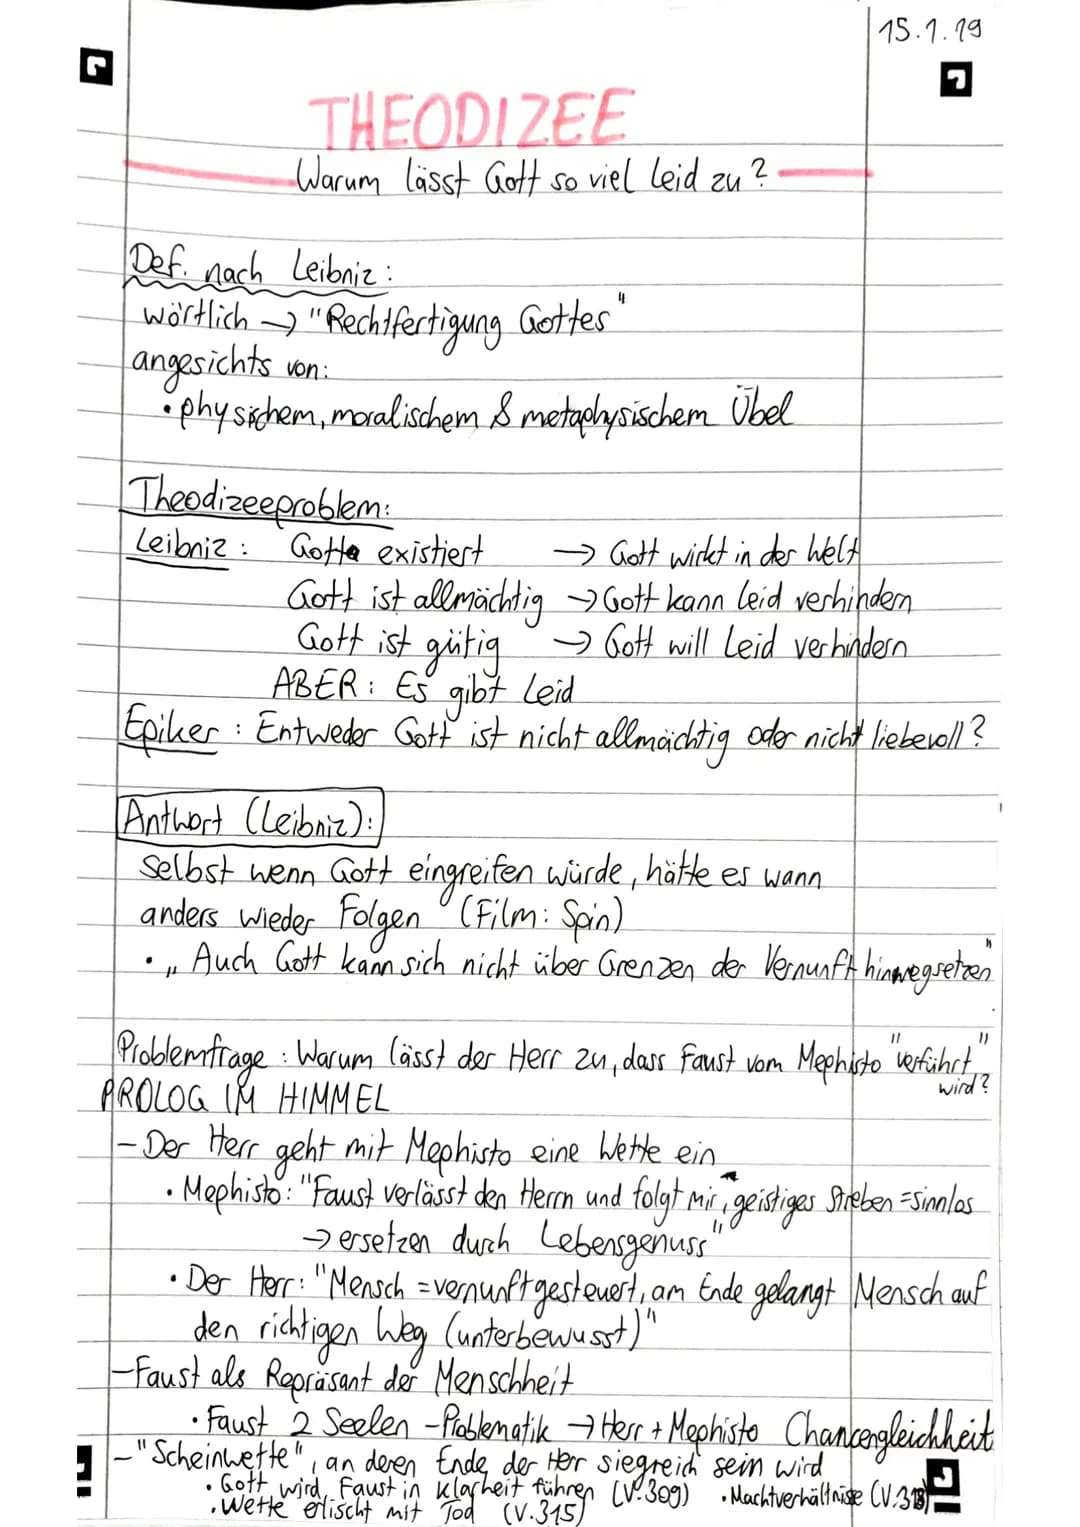 15.1.19
THEODIZEE
Warum lässt Gott so viel Leid zu?
Def. nach Leibniz:
wörtlich → "Rechtfertigung Gottes"
angesichts von:
• physischem, moralischem & metaphysischem Übel
Theodizeeproblem:
Leibniz: Gott existiert → Gott wirkt in der Welt
Gott ist allmächtig → Gott kann Leid verhindern
Gott ist gütig → Gott will Leid verhindern
ABER: Es gibt Leid
Epiker: Entweder Gott ist nicht allmächtig oder nicht liebevoll?
Antwort (Leibniz):
Selbst wenn Gott eingreifen würde, hätte es wann
anders wieder Folgen (Film: Spin)
• „Auch Gott kann sich nicht über Grenzen der Vernunft hinwegsetzen"
Problemfrage: Warum lässt der Herr zu, dass Faust vom Mephisto "verführt"
wird?
PROLOG IM HIMMEL
- Der Herr geht mit Mephisto eine Wette ein
• Mephisto: "Faust verlässt den Herrn und folgt mir, geistiges Streben = sinnlos
→ ersetzen durch Lebensgenuss"
• Der Herr: "Mensch = vernunftgesteuert, am Ende gelangt Mensch auf
den richtigen Weg (unterbewusst)"
- Faust als Repräsant der Menschheit
• Faust 2 Seelen - Problematik → Herr + Mephisto Chancengleichheit
- "Scheinwette", an deren Ende der Herr siegreich sein wird
• Gott wird Faust in Klarheit führen (V.309) • Machtverhältnise
• Wette erlischt mit Tod (V.315)